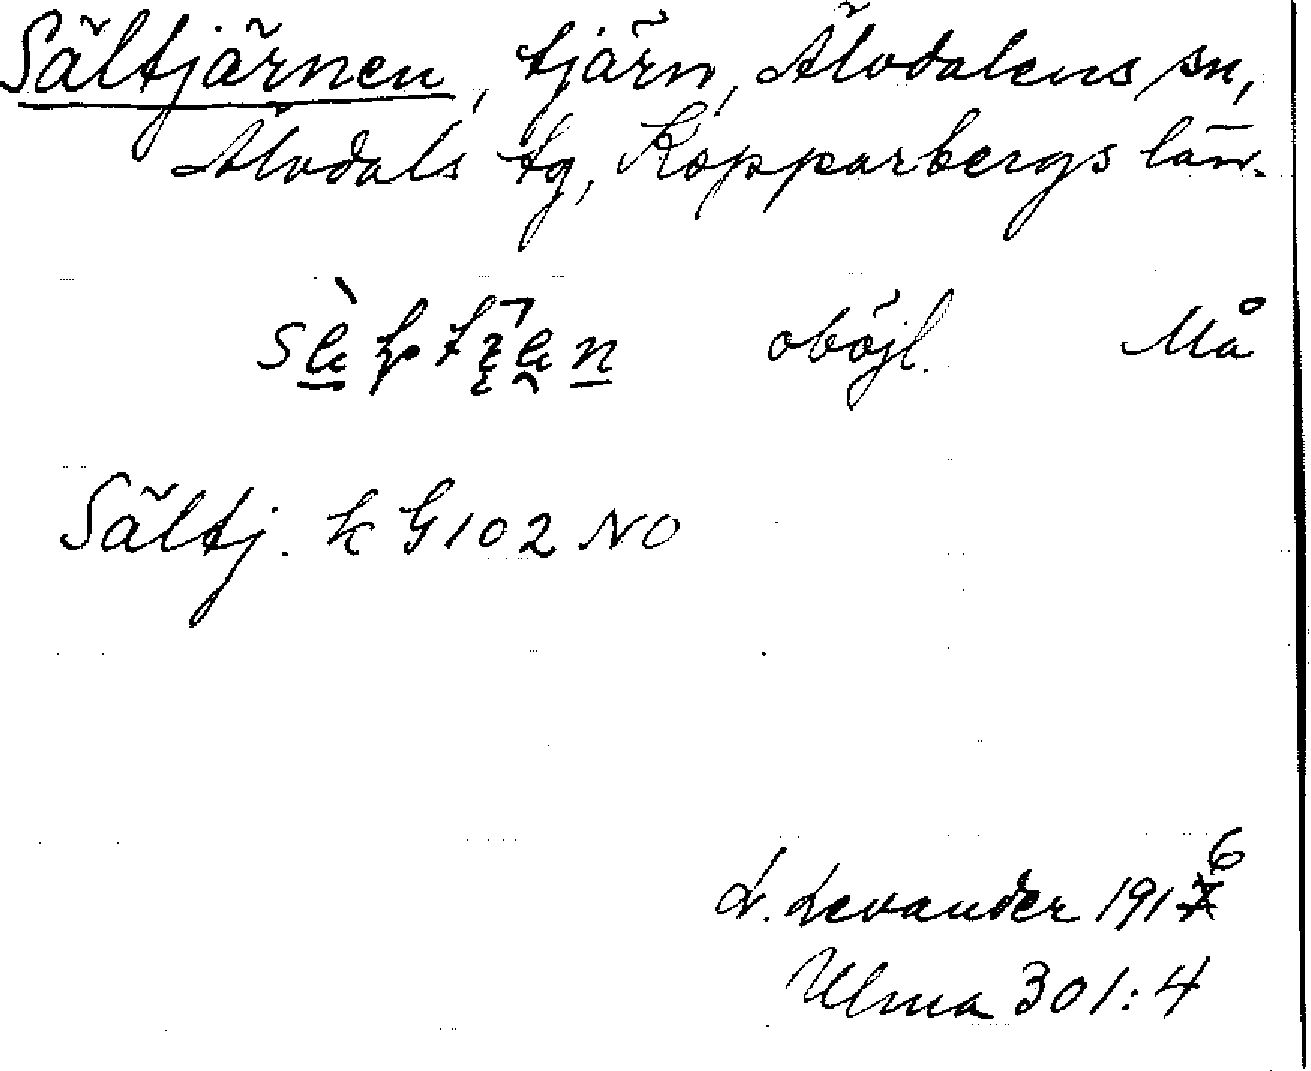 Sältjärnen, tjärn, Älvdalens sn,
Älvdals tg, Kopparbergs län.
oböjl. Må
Sältj. k G102 NO
L. Levander 1916
Ulma 301:4